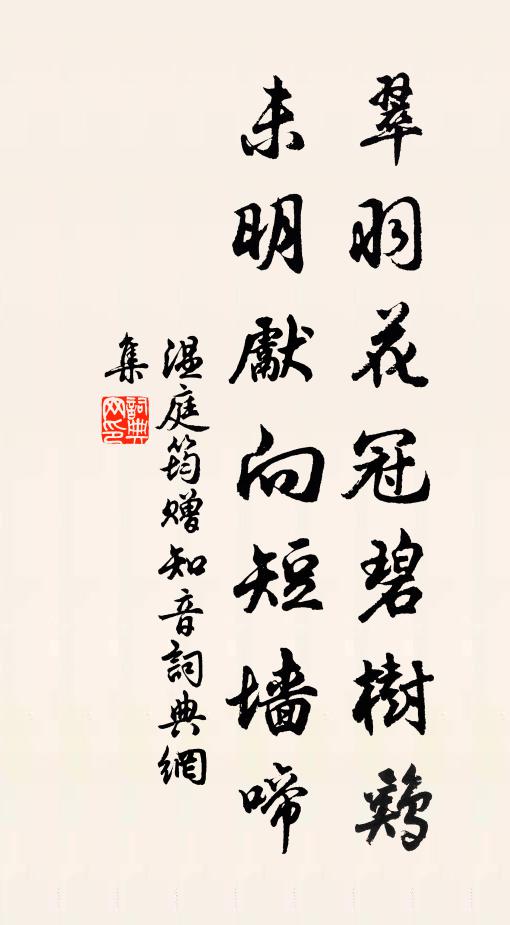 翠羽花冠碧樹鷄
未明獻向短墻啼
温庭筠贈知音詞典網
集
詞典
网印